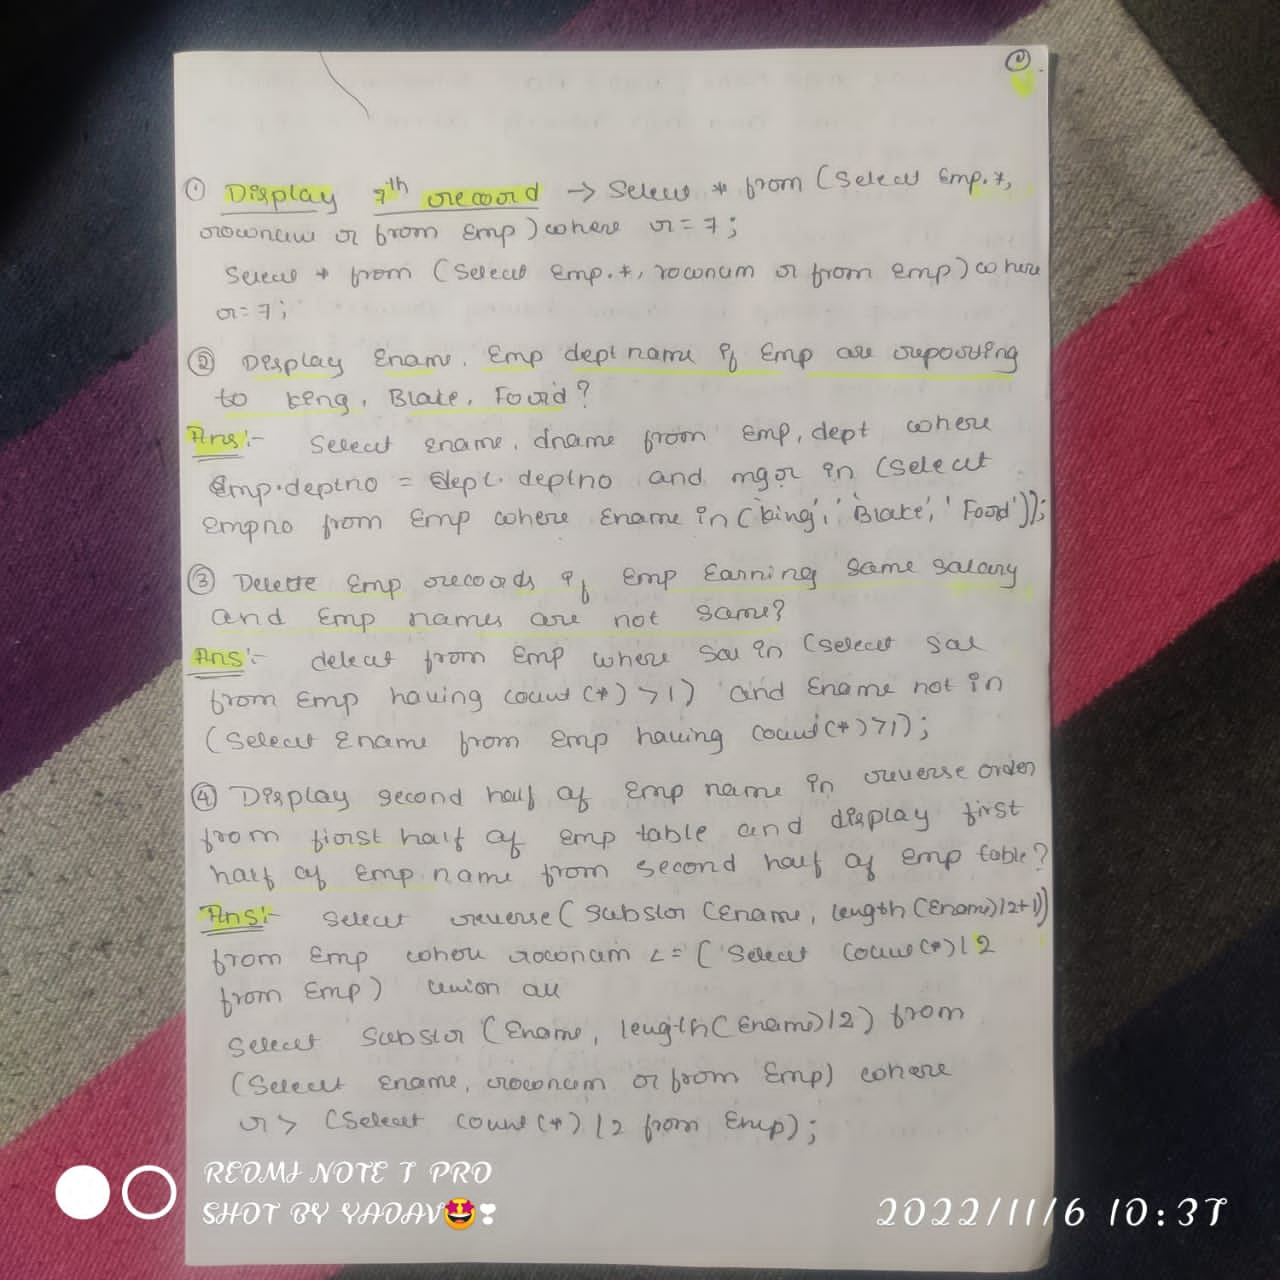 ① Display 7th record → Select * from (Select Emp.*,
rownum r from Emp) where r=7;
Select * from (Select Emp.*, rownum r from emp) where
r=7;
② Display Ename, Emp dept name if Emp are reporting
to king, Blake, Ford?
Ans:- Select ename, dname from emp, dept where
Emp.deptno = dept.deptno and mgr in (Select
empno from Emp where Ename in ('king', 'Blake', 'Ford'));
③ Delete Emp records if Emp Earning same salary
and Emp names are not same?
Ans:- delect from Emp where sal in (select sal
from Emp having count(*)>1) and Ename not in
(Select Ename from Emp having count(*)>1);
④ Display second half of Emp name in reverse order
from first half of emp table and display first
half of Emp name from second half of emp table?
Ans:- Select reverse(substr(Ename, length(Ename)/2+1))
from Emp where rownum <= (Select count(*)/2
from Emp) union all
Select Substr(Ename, length(Ename)/2) from
(Select Ename, rownum r from Emp) where
r > (Select count(*)/2 from Emp);
REDMI NOTE 7 PRO
SHOT BY YADAV🤩❣
2022/11/6 10:37